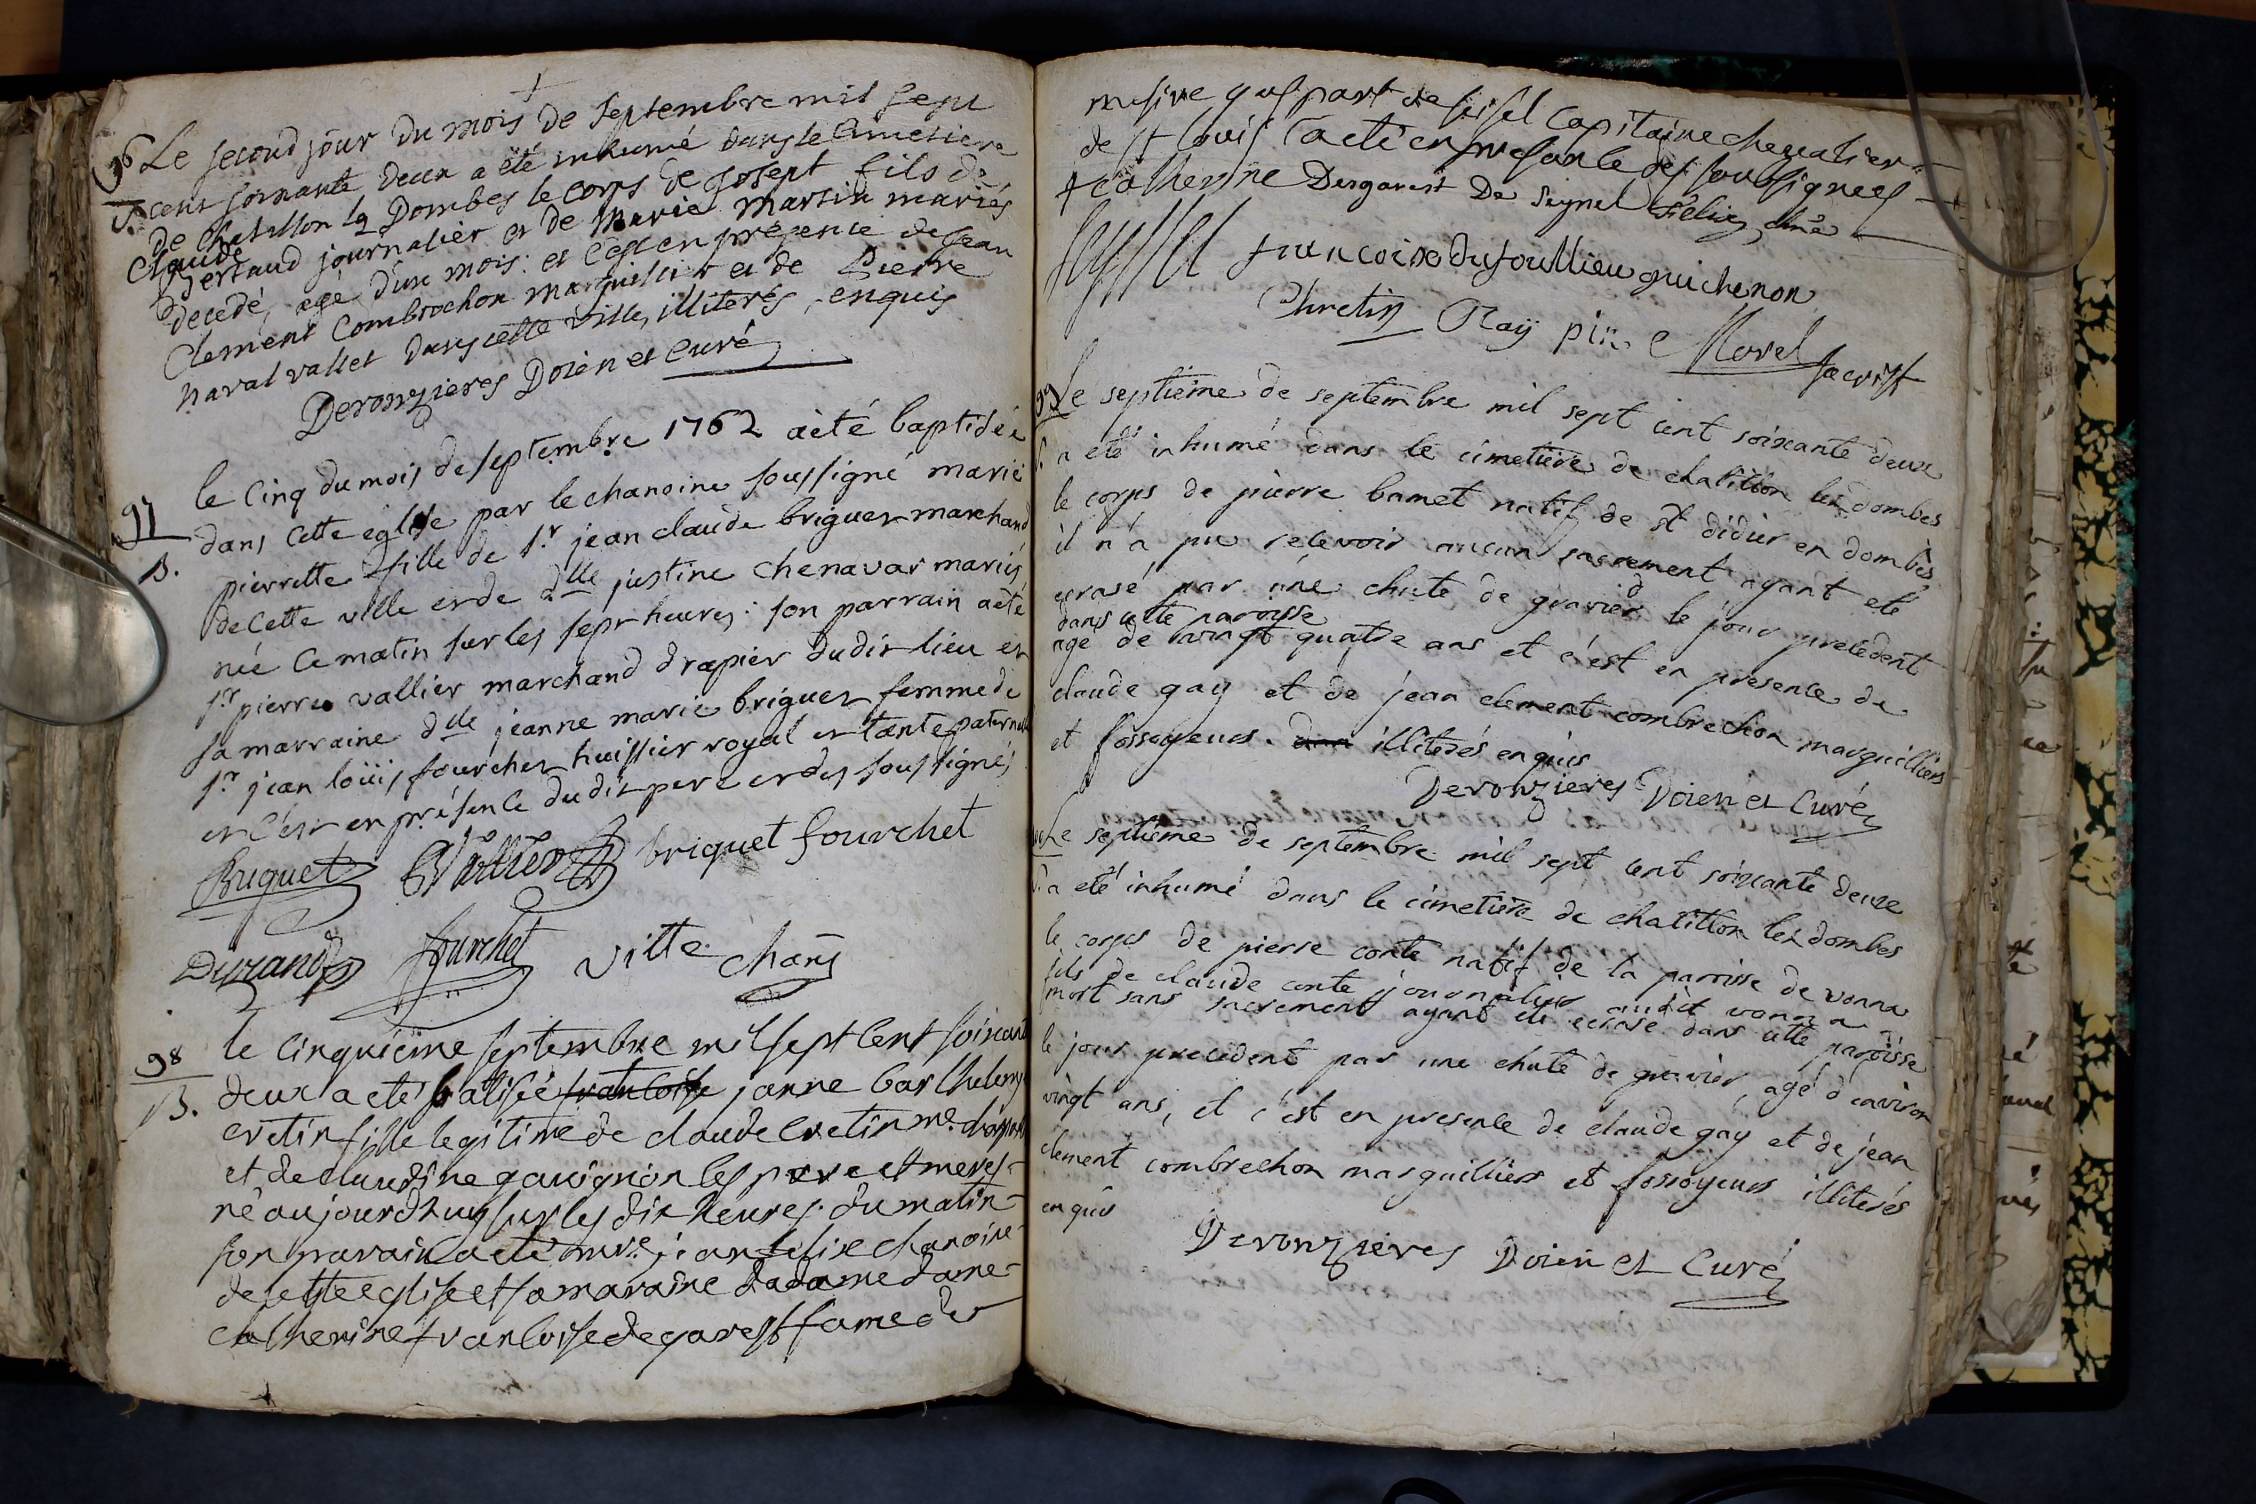 96 Le second jour du mois de Septembre mil Sept
S. cent soixante deux a été inhumé dans le Cimetiere
de Chatillon lez Dombes le corps de Joseph fils de
Claude
Bertaud journalier et de Marie Martin mariés
decedé, agé d'un mois: et c'est en présence de Jean
Clement Combrochon marguillier et de Pierre
Naraval vallet dans cette ville, illiterés, enquis
Deronzieres Doïen et Curé
97 le Cinq du mois de septembre 1762 a été baptisée
B. dans cette eglise par le chanoine soussigné marie
pierrette fille de Sr. jean claude briguet marchand
de cette ville et de dlle justine chenavar mariés,
née ce matin sur les sept heures: son parrain a été
Sr. pierre vallier marchand drapier dudit lieu et
sa marraine dlle jeanne marie briguet femme de
Sr. jean loüis fourchet huissier royal et tante paternelle
et c'est en présence dudit pere et des soussignés
Briguet Vallier briquet fourchet
Durand fourchet Vitte chañe
98 le cinquiême septembre mil sept cent soixante
B. deux a eté batisée francoise janne barthelemy
cretin fille legitime de claude cretin me.
et de claudine gavignon les pere et mere
né aujourdhuy sur les dix heures du matin
son parain a eté mre. jean felix chanoine
de cette eglise et sa maraine dadame dame
catherine francoise degarest fame de
mesire gaspart de seisel Capitaine chevalier
de St louis l'acte en presan le des sousignees
+ catherine Desgarest De Seyssel Félix, chñe
Seyssel francoise dufoullieu guichenon
Chretin Ray Morel sacrist
99 Le septieme de septembre mil sept cent soixante deux
S. a eté inhumé dans le cimetiere de chatillon lez dombes
le corps de pierre bamet natif de St didier en dombes
il n'a pu recevoir aucun sacrement ayant eté
ecrasé par une chute de gravier le jour precedent
dans cette paroisse
agé de vingt quatre ans et c'est en presence de
claude gay et de jean clement combrechon marguilliers
et fossoyeurs. illiterés enquis
Deronzieres Doïen et Curé
Le septieme de septembre mil sept cent soixante deux
S. a eté inhumé dans le cimetiere de chatillon lez dombes
le corps de pierre conte natif de la paroisse de vonna
fils de claude conte journalier audit vonna
mort sans sacrement ayant eté ecrasé dans cette paroisse
le jour precedent par une chute de gravier, agé d'environ
vingt ans, et c'est en presence de claude gay et de jean
clement combrechon marguilliers et fossoyeurs illiterés
enquis
Deronzieres Doïen et Curé